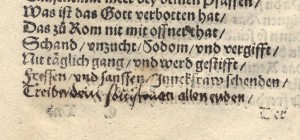 meer bey deinen Pfaffen/
Was ist das Gott verbotten hat/
Das zů Rom nit mit offner that/
Schand/ vnzucht/ Sodom/ vnd vergifft/
Nit täglich gang/ vnd werd gestifft/
Fressen/ vnd sauffen/ Junckfraw schenden/
Treiben allen enden/
Der